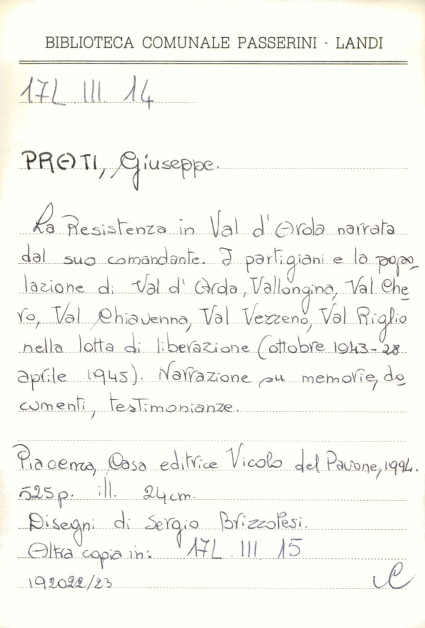 BIBLIOTECA COMUNALE PASSERINI - LANDI
17L III 14
PROTI, Giuseppe.
La Resistenza in Val d'Arda narrata
dal suo comandante. I partigiani e la popo_
lazione di Val d'Arda, Vallongina, Val Che_
ro, Val Chiavenna, Val Vezzeno, Val Riglio
nella lotta di liberazione (ottobre 1943-28
aprile 1945). Narrazione su memorie, do_
cumenti, testimonianze.
Piacenza, Casa editrice Vicolo del Pavone, 1994.
525 p. ill. 24 cm.
Disegni di Sergio Brizzolesi.
Altra copia in: 17L III 15
192022/23